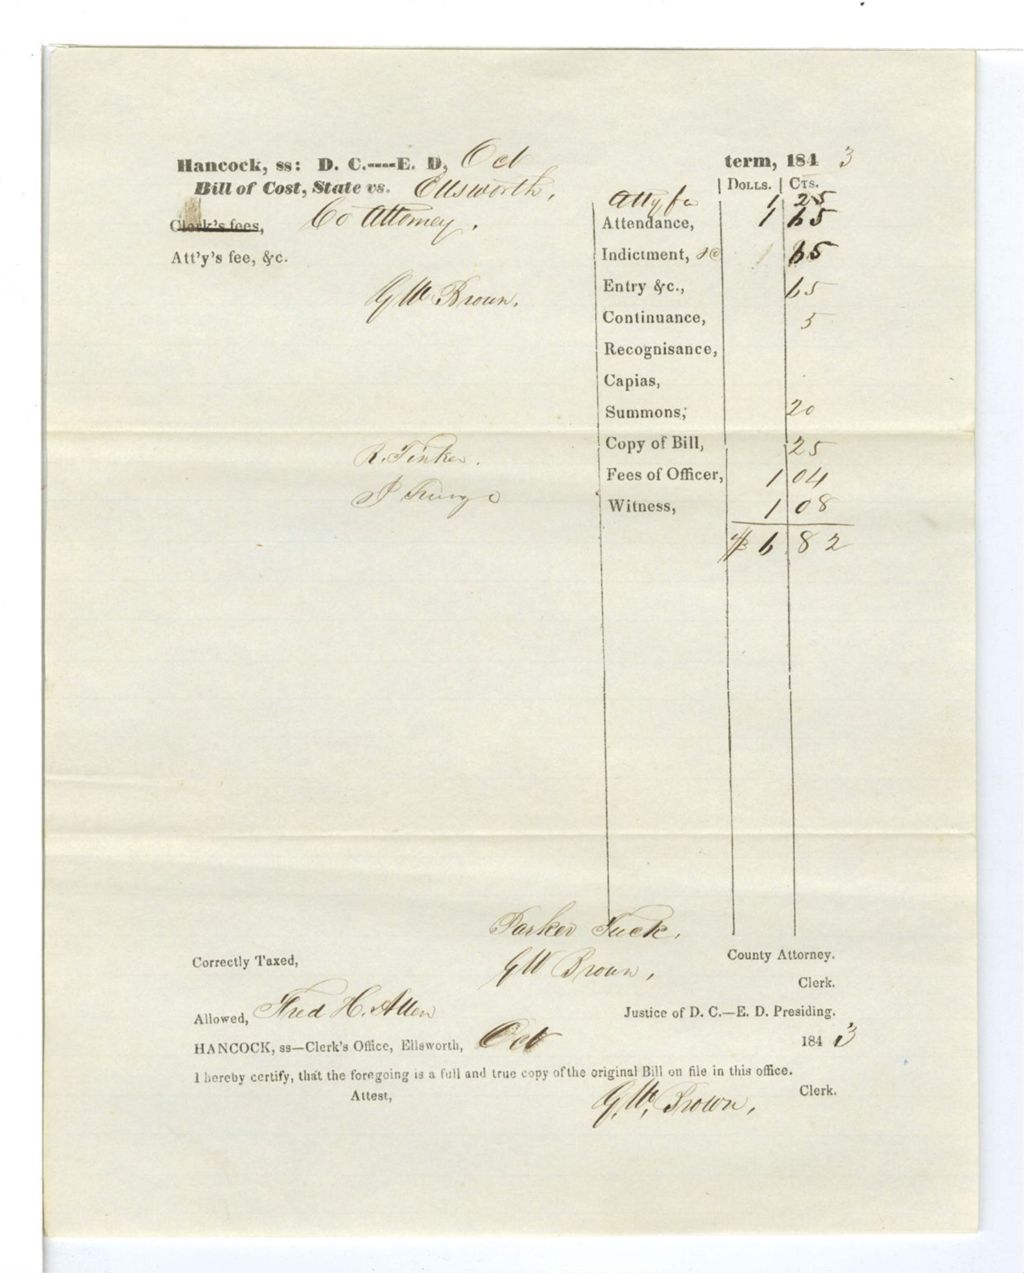 Hancock, ss: D. C.----E. D, Oct term, 1843
Bill of Cost, State vs. Ellsworth, DOLLS. | CTS.
Clerk's fees, Co Attorney. Atty fee 1 25
Attendance, 1 65
Att'y's fee, &c. Indictment, &c 1 65
G W Brown. Entry &c., 65
Continuance, 5
Recognisance,
Capias,
Summons, 20
R. Tinker. Copy of Bill, 25
Fees of Officer, 1 04
Witness, 1 08
$ 6 82
Parker Tuck.
Correctly Taxed, County Attorney.
G W Brown, Clerk.
Allowed, Fred H. Allen Justice of D. C.—E. D. Presiding.
HANCOCK, ss—Clerk's Office, Ellsworth, Oct 1843
I hereby certify, that the foregoing is a full and true copy of the original Bill on file in this office.
Attest, G. W. Brown, Clerk.